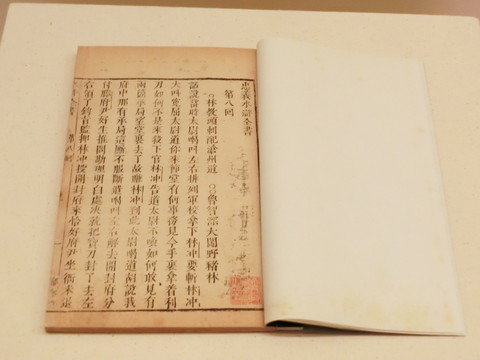 忠義水滸全書
第八回
林教頭刺配滄州道 魯智深大閙野猪林
話說當時太尉喝叫左右排列軍校拿下林冲要斬林冲
大叫冤屈太尉道你來節堂有何事務見今手裏拿着利
刃如何不是來殺下官林冲告道太尉不喚如何敢見有
兩個承局望堂裏去了故賺林冲到此太尉喝道胡說我
府中那有承局這廝不服斷遣喝叫左右解去開封府分
付滕府尹好生推問勘理明白處決就把寶刀封了去左
右領了鈞旨監押林冲投開封府來恰好府尹坐衙未退
第八回